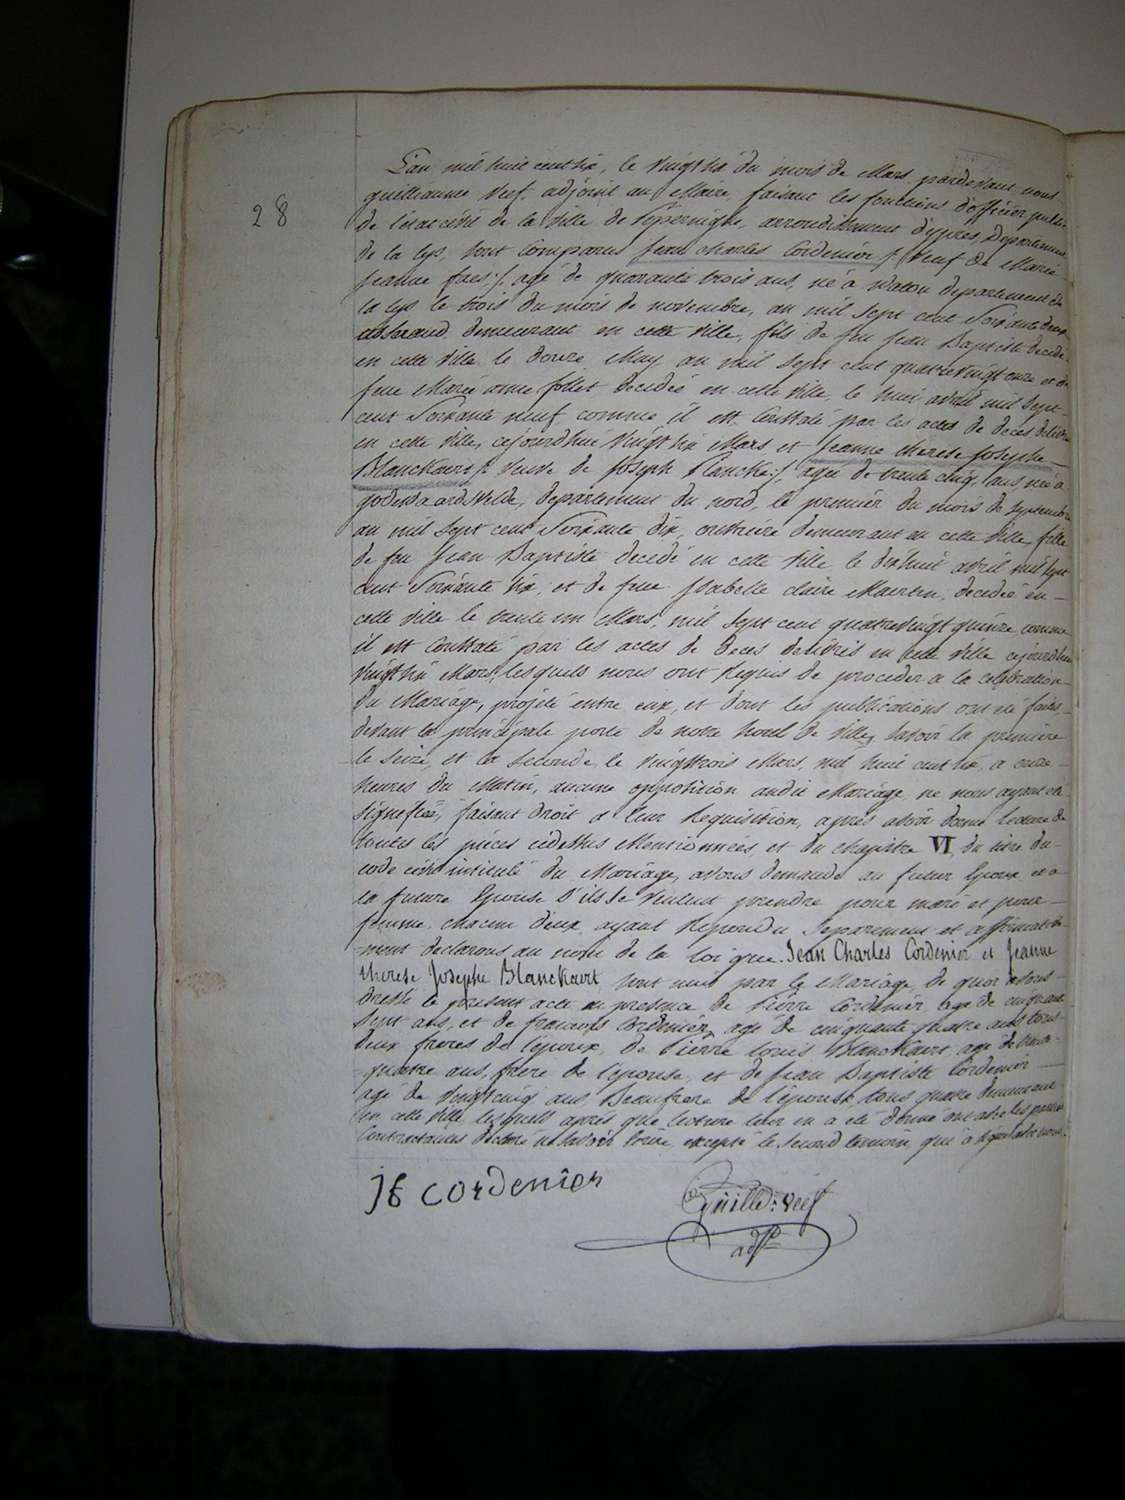 L'an mil huit cent six, le vingt six du mois de Mars pardevant nous
28
guillaume Veef, adjoint au Maire, faisant les fonctions d'officier public
de l'état civil de la Ville de Poperinghe, arrondissement d'ypres, Departement
de la lys, sont comparus Jean Charles Cordenier /: Veuf de Marie
Jeanne faes :/ agé de quarante trois ans, né à Watou departement de
la lys le trois du mois de novembre, an mil sept cent Soixante deux
demeurant en cette Ville, fils de feu Jean Baptiste decedé
en cette Ville le douze May an mil sept cent quatrevingt onze et de
feue Marie anne follet decedée en cette Ville, le huit avril mil sept
cent Soixante neuf comme il est Constaté par les actes de deces delivrés
en cette Ville, cejourdhui Vingt six Mars et Jeanne therese Josephe
Blanckaert /: Veuve de Joseph Plancke :/ agée de trente cinq ans, née a
godewaardsvelde, departement du nord, le premier du mois de septembre
an mil sept cent Soixante dix, ouvriere demeurant en cette Ville, fille
de feu Jean Baptiste decedé en cette Ville le dixhuit avril mil sept
cent Soixante six, et de feue Isabelle claire Maerten, decedée en
cette Ville le trente un Mars, mil sept cent quatrevingt quinze, comme
il est Constaté par les actes de deces delivrés en cette Ville cejourdhui
Vingt six Mars, lesquels nous ont Requis de proceder a la celebration
du Mariage, projeté entre eux, et dont les publications ont été faites
devant la principale porte de notre hotel de Ville, savoir la premiere
le seize, et la seconde, le Vingt trois Mars, mil huit cent six, a onze
heures du Matin, aucune opposition audit Mariage ne nous ayant été
signifiée, faisant droit a leur Requisition, après avoir donné lecture de
toutes les pieces cidessus Mentionnées, et du chapitre VI, du titre du
code civil intitulé du Mariage, avons demandé au futur Epoux et a
la future Epouse s'ils se Veulent prendre pour mari et pour
femme, chacun d'eux, ayant Repondu Separement et affirmative
-ment declarons au nom de la loi que Jean Charles Cordenier et Jeanne
therese Josephe Blanckaert sont unis par le Mariage, de quoi avons
dressé le present acte en presence de Pierre Cordenier, agé de cinquante
sept ans, et de francois Cordenier, agé de cinquante quatre ans tous
deux freres de l'epoux, de Pierre louis Blanckaert, agé de trente
quatre ans, frere de l'epouse, et de Jean Baptiste Cordenier
agé de vingtcinq ans Beaufrere de l'epouse, tous quatre demeurant
en cette Ville, lesquels après que lecture leur en a été donné ont avec les parties
Contractantes déclaré ne savoir Ecrire, excepté le second temoin, qui a signé avec nous.
Jf cordenier
Guille: Veef
adjt